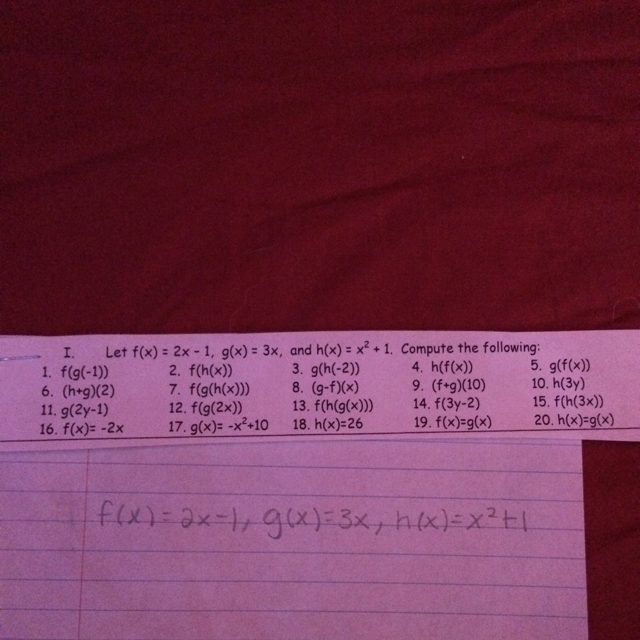 I. Let f(x) = 2x - 1, g(x) = 3x, and h(x) = x² + 1. Compute the following:
1. f(g(-1)) 2. f(h(x)) 3. g(h(-2)) 4. h(f(x)) 5. g(f(x))
6. (h+g)(2) 7. f(g(h(x))) 8. (g-f)(x) 9. (f+g)(10) 10. h(3y)
11. g(2y-1) 12. f(g(2x)) 13. f(h(g(x))) 14. f(3y-2) 15. f(h(3x))
16. f(x)= -2x 17. g(x)= -x²+10 18. h(x)=26 19. f(x)=g(x) 20. h(x)=g(x)
f(x)=2x-1, g(x)=3x, h(x)=x²+1